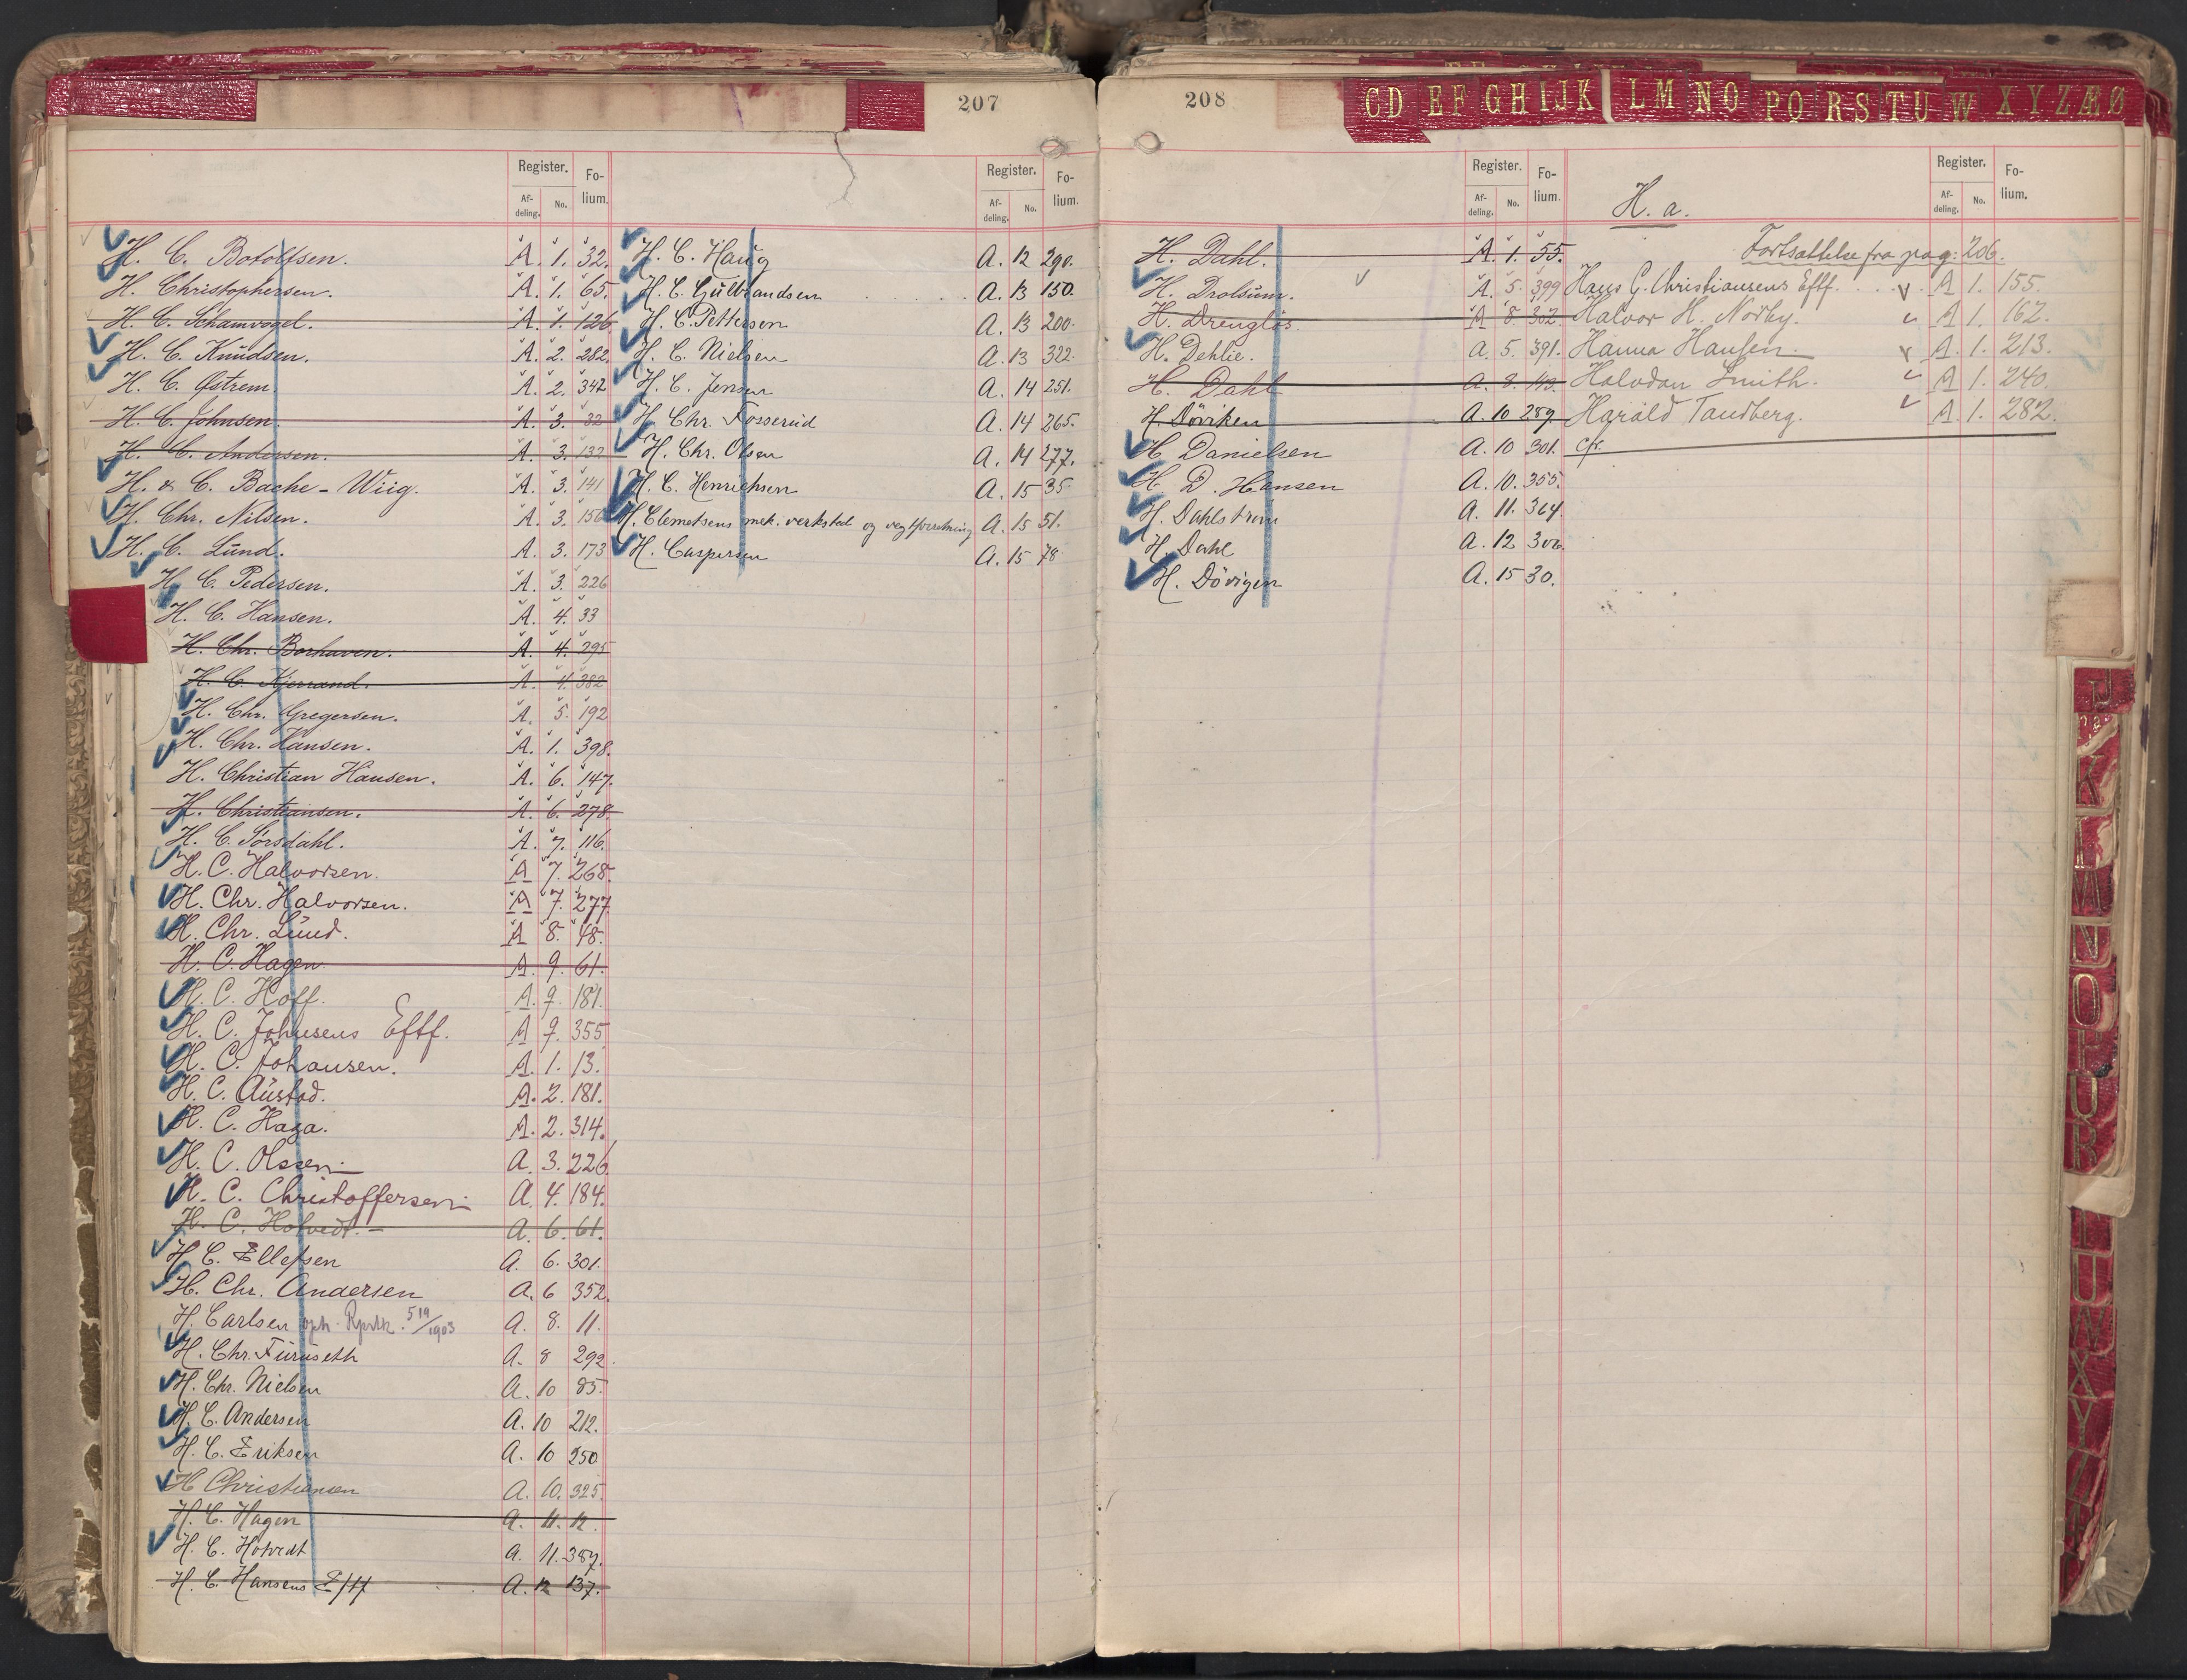 207
Register. Fo-
lium.
Af-
deling. No.
H. C. Botolfsen. A. 1. 32.
H. Christophersen. A. 1. 65.
H. C. Schamvogel. A. 1. 126
H. C. Knudsen. A. 2. 282.
H. C. Østrem A. 2. 342
H. C. Johnsen. A. 3. 32
H. C. Andersen. A. 3. 132
H. & C. Bache-Wiig. A. 3. 141
H. Chr. Nilsen. A. 3. 156
H. C. Lund. A. 3. 173
H. C. Pedersen. A. 3. 226
H. C. Hansen. A. 4. 33
H. Chr. Borhaven. A. 4. 295
H. C. Kjerrand. A. 4. 382
H. Chr. Gregersen. A. 5. 192
H. Chr. Hansen. A. 1. 398.
H. Christian Hansen. A. 6. 147.
H. Christiansen. A. 6. 278.
H. C. Sørsdahl. A. 7. 116.
H. C. Halvorsen. A 7. 268.
H. Chr. Halvorsen. A 7. 277
H. Chr. Lund. A 8. 48.
H. C. Hagen A. 9. 61.
H. C. Hoff. A. 9. 181.
H. C. Johnsens Eftf. A 9. 355
H. C. Johansen. A. 1. 13.
H. C. Austad. A. 2. 181.
H. C. Haga. A. 2. 314.
H. C. Olssen. A. 3. 226
H. C. Christoffersen. A. 4. 184.
H. C. Hotvedt. A. 6. 61.
H. C. Ellefsen A. 6. 301.
H. Chr. Andersen A. 6 352.
H. Carlsen oph. 519/1903 A. 8. 11.
H. Chr. Furuseth A. 8 292.
H. Chr. Nielsen A. 10 85.
H. C. Andersen A. 10 212.
H. C. Eriksen A. 10 250
H Christiansen A. 10. 325.
H. C. Hagen A. 11. 12.
H. C. Hotvedt A. 11. 387.
H. C. Hansens Eftf A. 12 137.
Register. Fo-
lium.
Af-
deling. No.
H. C. Haug A. 12 290.
H. C. Gulbrandsen A. 13 150.
H. C. Pettersen A. 13 200.
H. C. Nielsen A. 13 322.
H. C. Jensen A. 14 251.
H Chr. Fosserud A. 14 265.
H. Chr. Olsen A. 14 277.
H. C. Henrichsen A. 15 35.
H. Clemetsens mek. verksted og vegtforretning A. 15 51.
H. Caspersen A. 15 78
208
CD EF GH IJK LM NO PQ RS TU W XYZÆØ
Register. Fo-
lium.
Af-
deling. No.
H. Dahl. A. 1. 55.
H. Drolsum. A. 5. 399
H. Drenglos. A 8. 302.
H. Dehlie. A. 5. 391.
H. Dahl A. 8. 113.
H. Döviken A. 10 289.
H Danielsen A. 10 301.
H. D. Hansen A. 10. 355.
H. Dahlstrøm A. 11. 364.
H. Dahl A. 12 306.
H. Dövigen A. 15 30.
H. a.
Register. Fo-
lium.
Af-
deling. No.
Fortsættelse fra pag: 206.
Hans G. Christiansens Eftf. A 1. 155.
Halvor H. Norby. A 1. 162.
Hanna Hansen A. 1. 213.
Halvdan Smith. A 1. 240.
Harald Tandberg. A. 1. 282.
cfr.
J
K
L
M
N
O
P
U
R
L
U
W
X
Y
Z